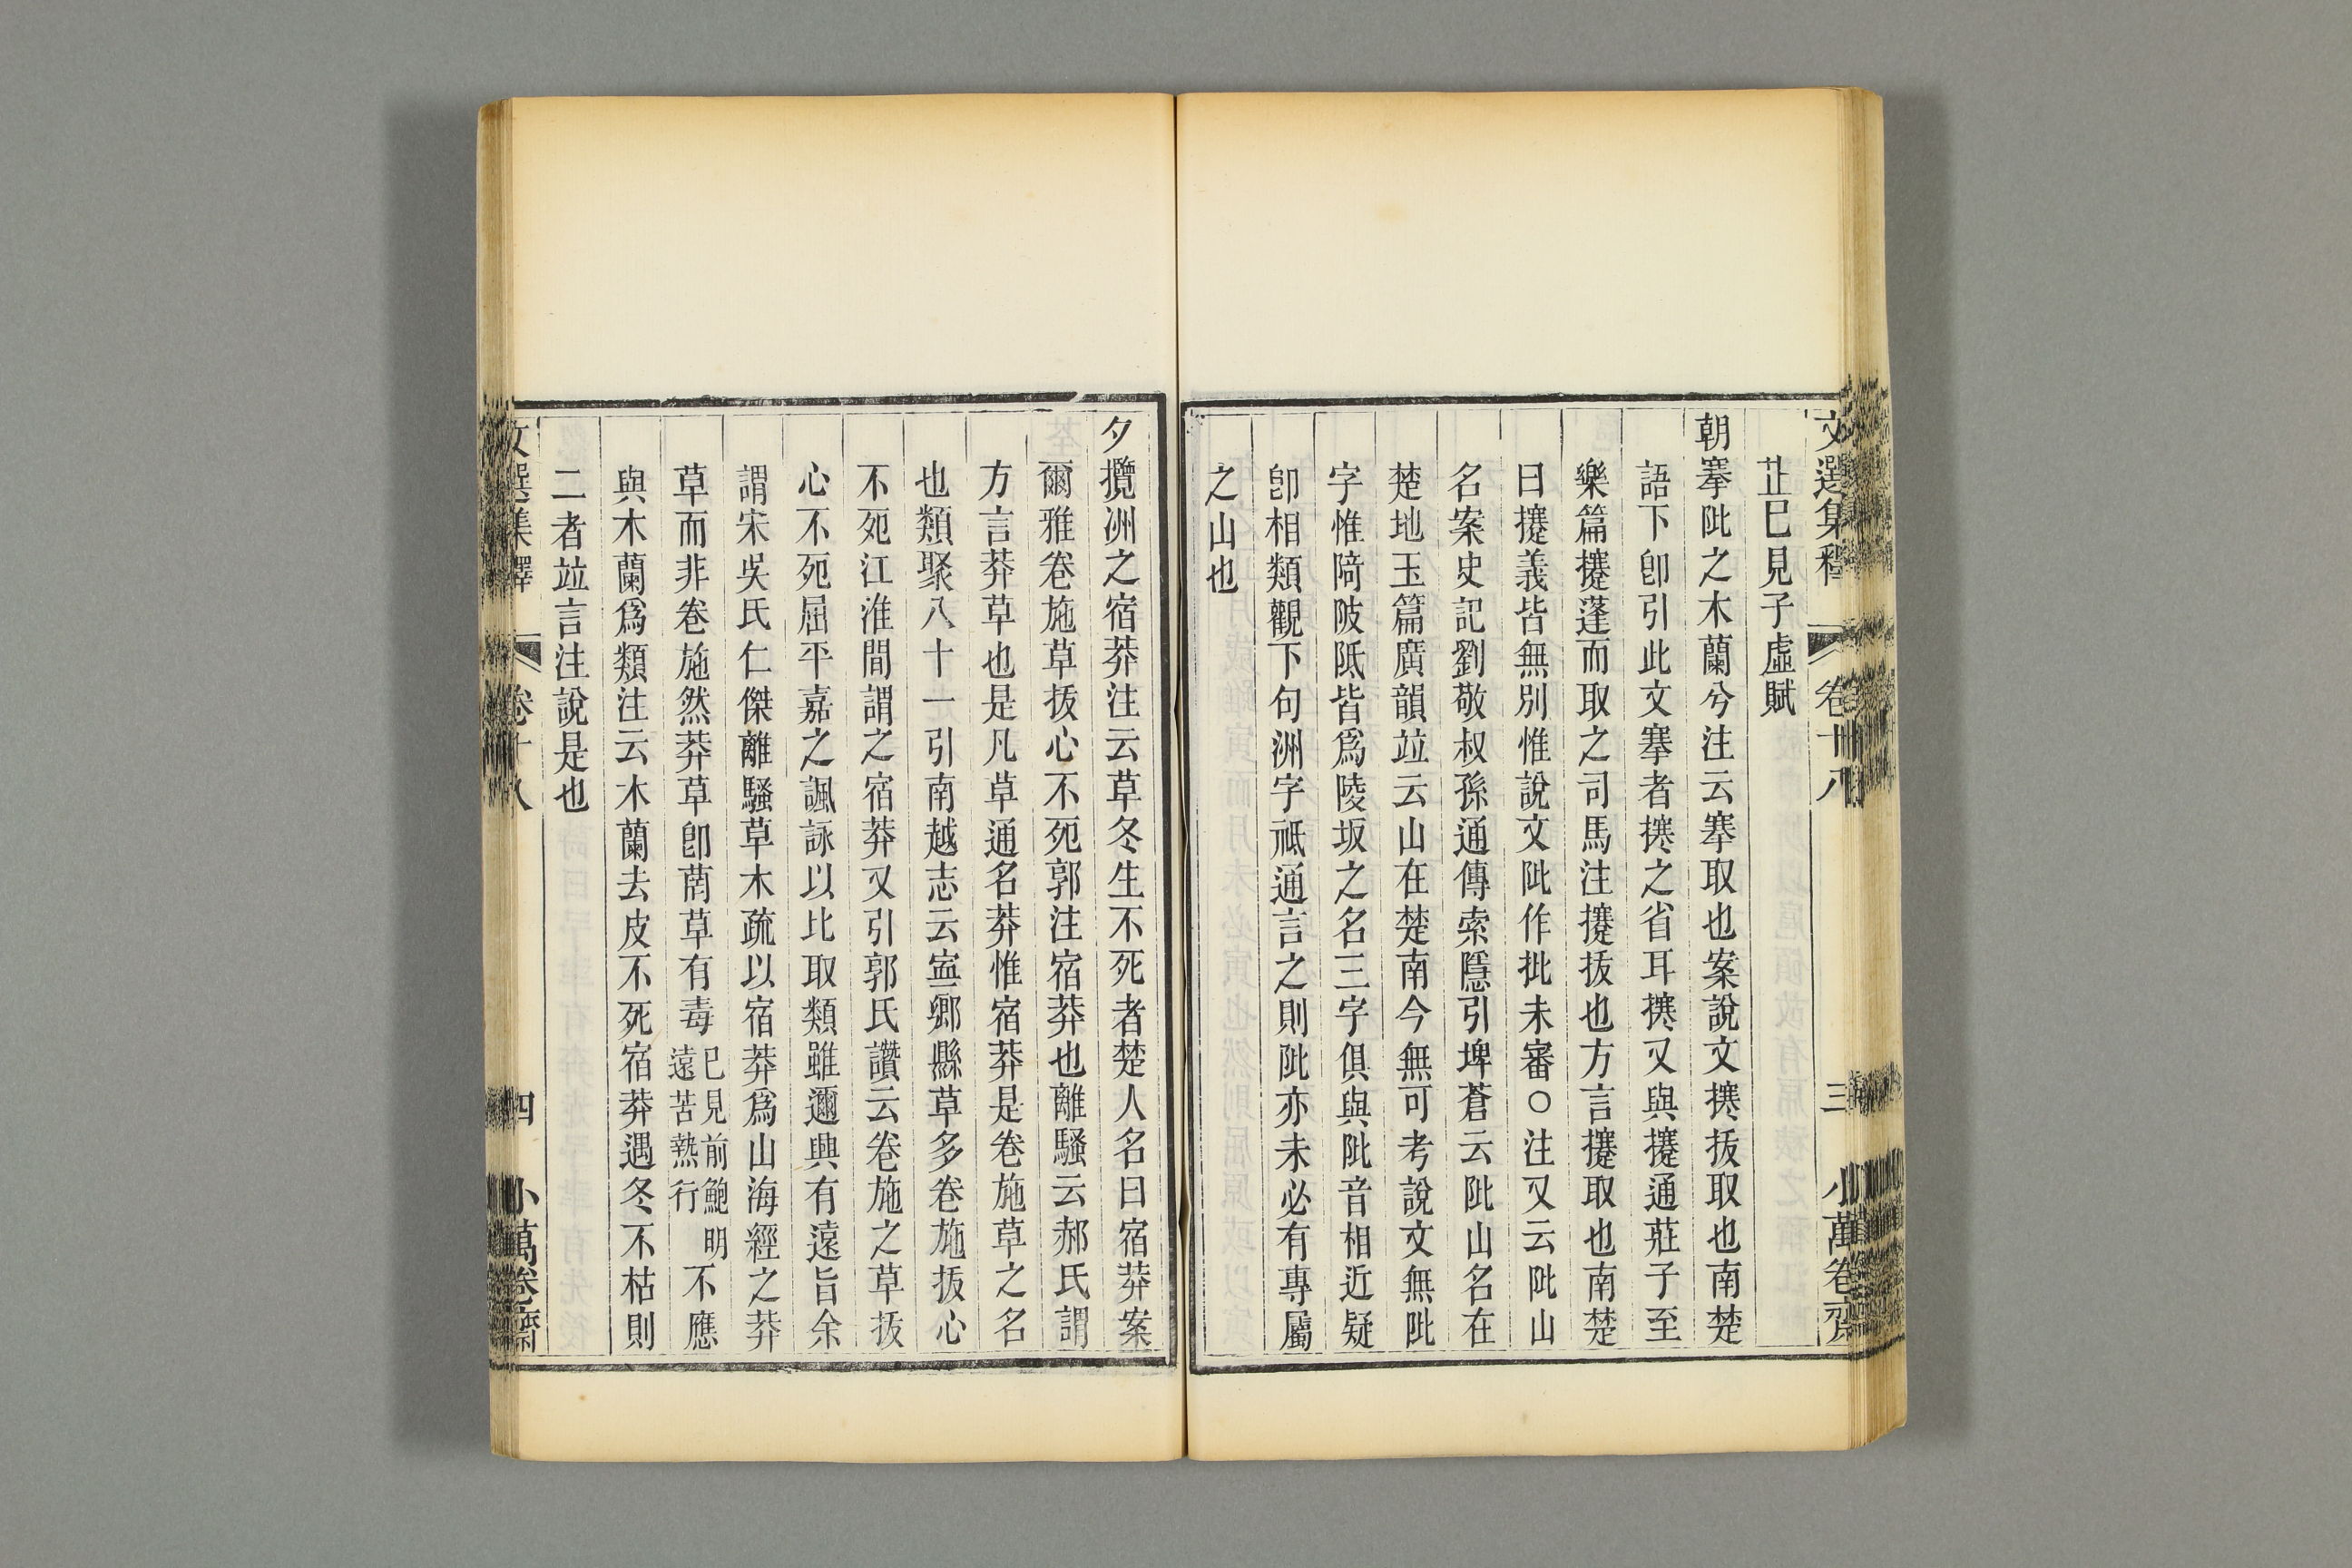 文選集釋 卷十八 三 小萬卷齋
芷已見子虛賦
朝搴阰之木蘭兮注云搴取也案說文㩃拔取也南楚
語下卽引此文搴者㩃之省耳㩃又與攓通莊子至
樂篇攓蓬而取之司馬注攓拔也方言攓取也南楚
曰攓義皆無別惟說文阰作批未審○注又云阰山
名案史記劉敬叔孫通傳索隱引埤蒼云阰山名在
楚地玉篇廣韻竝云山在楚南今無可考說文無阰
字惟陭陂阺皆爲陵坂之名三字俱與阰音相近疑
卽相類觀下句洲字祗通言之則阰亦未必有專屬
之山也
夕攬洲之宿莽注云草冬生不死者楚人名曰宿莽案
爾雅卷施草拔心不死郭注宿莽也離騷云郝氏謂
方言莽草也是凡草通名莽惟宿莽是卷施草之名
也類聚八十一引南越志云寍鄉縣草多卷施拔心
不死江淮間謂之宿莽又引郭氏讚云卷施之草拔
心不死屈平嘉之諷詠以比取類雖邇興有遠旨余
謂宋吳氏仁傑離騷草木疏以宿莽爲山海經之莽
草而非卷施然莽草卽䓞草有毒已見前鮑明遠苦熱行不應
與木蘭爲類注云木蘭去皮不死宿莽遇冬不枯則
二者竝言注說是也
文選集釋 卷十八 四 小萬卷齋